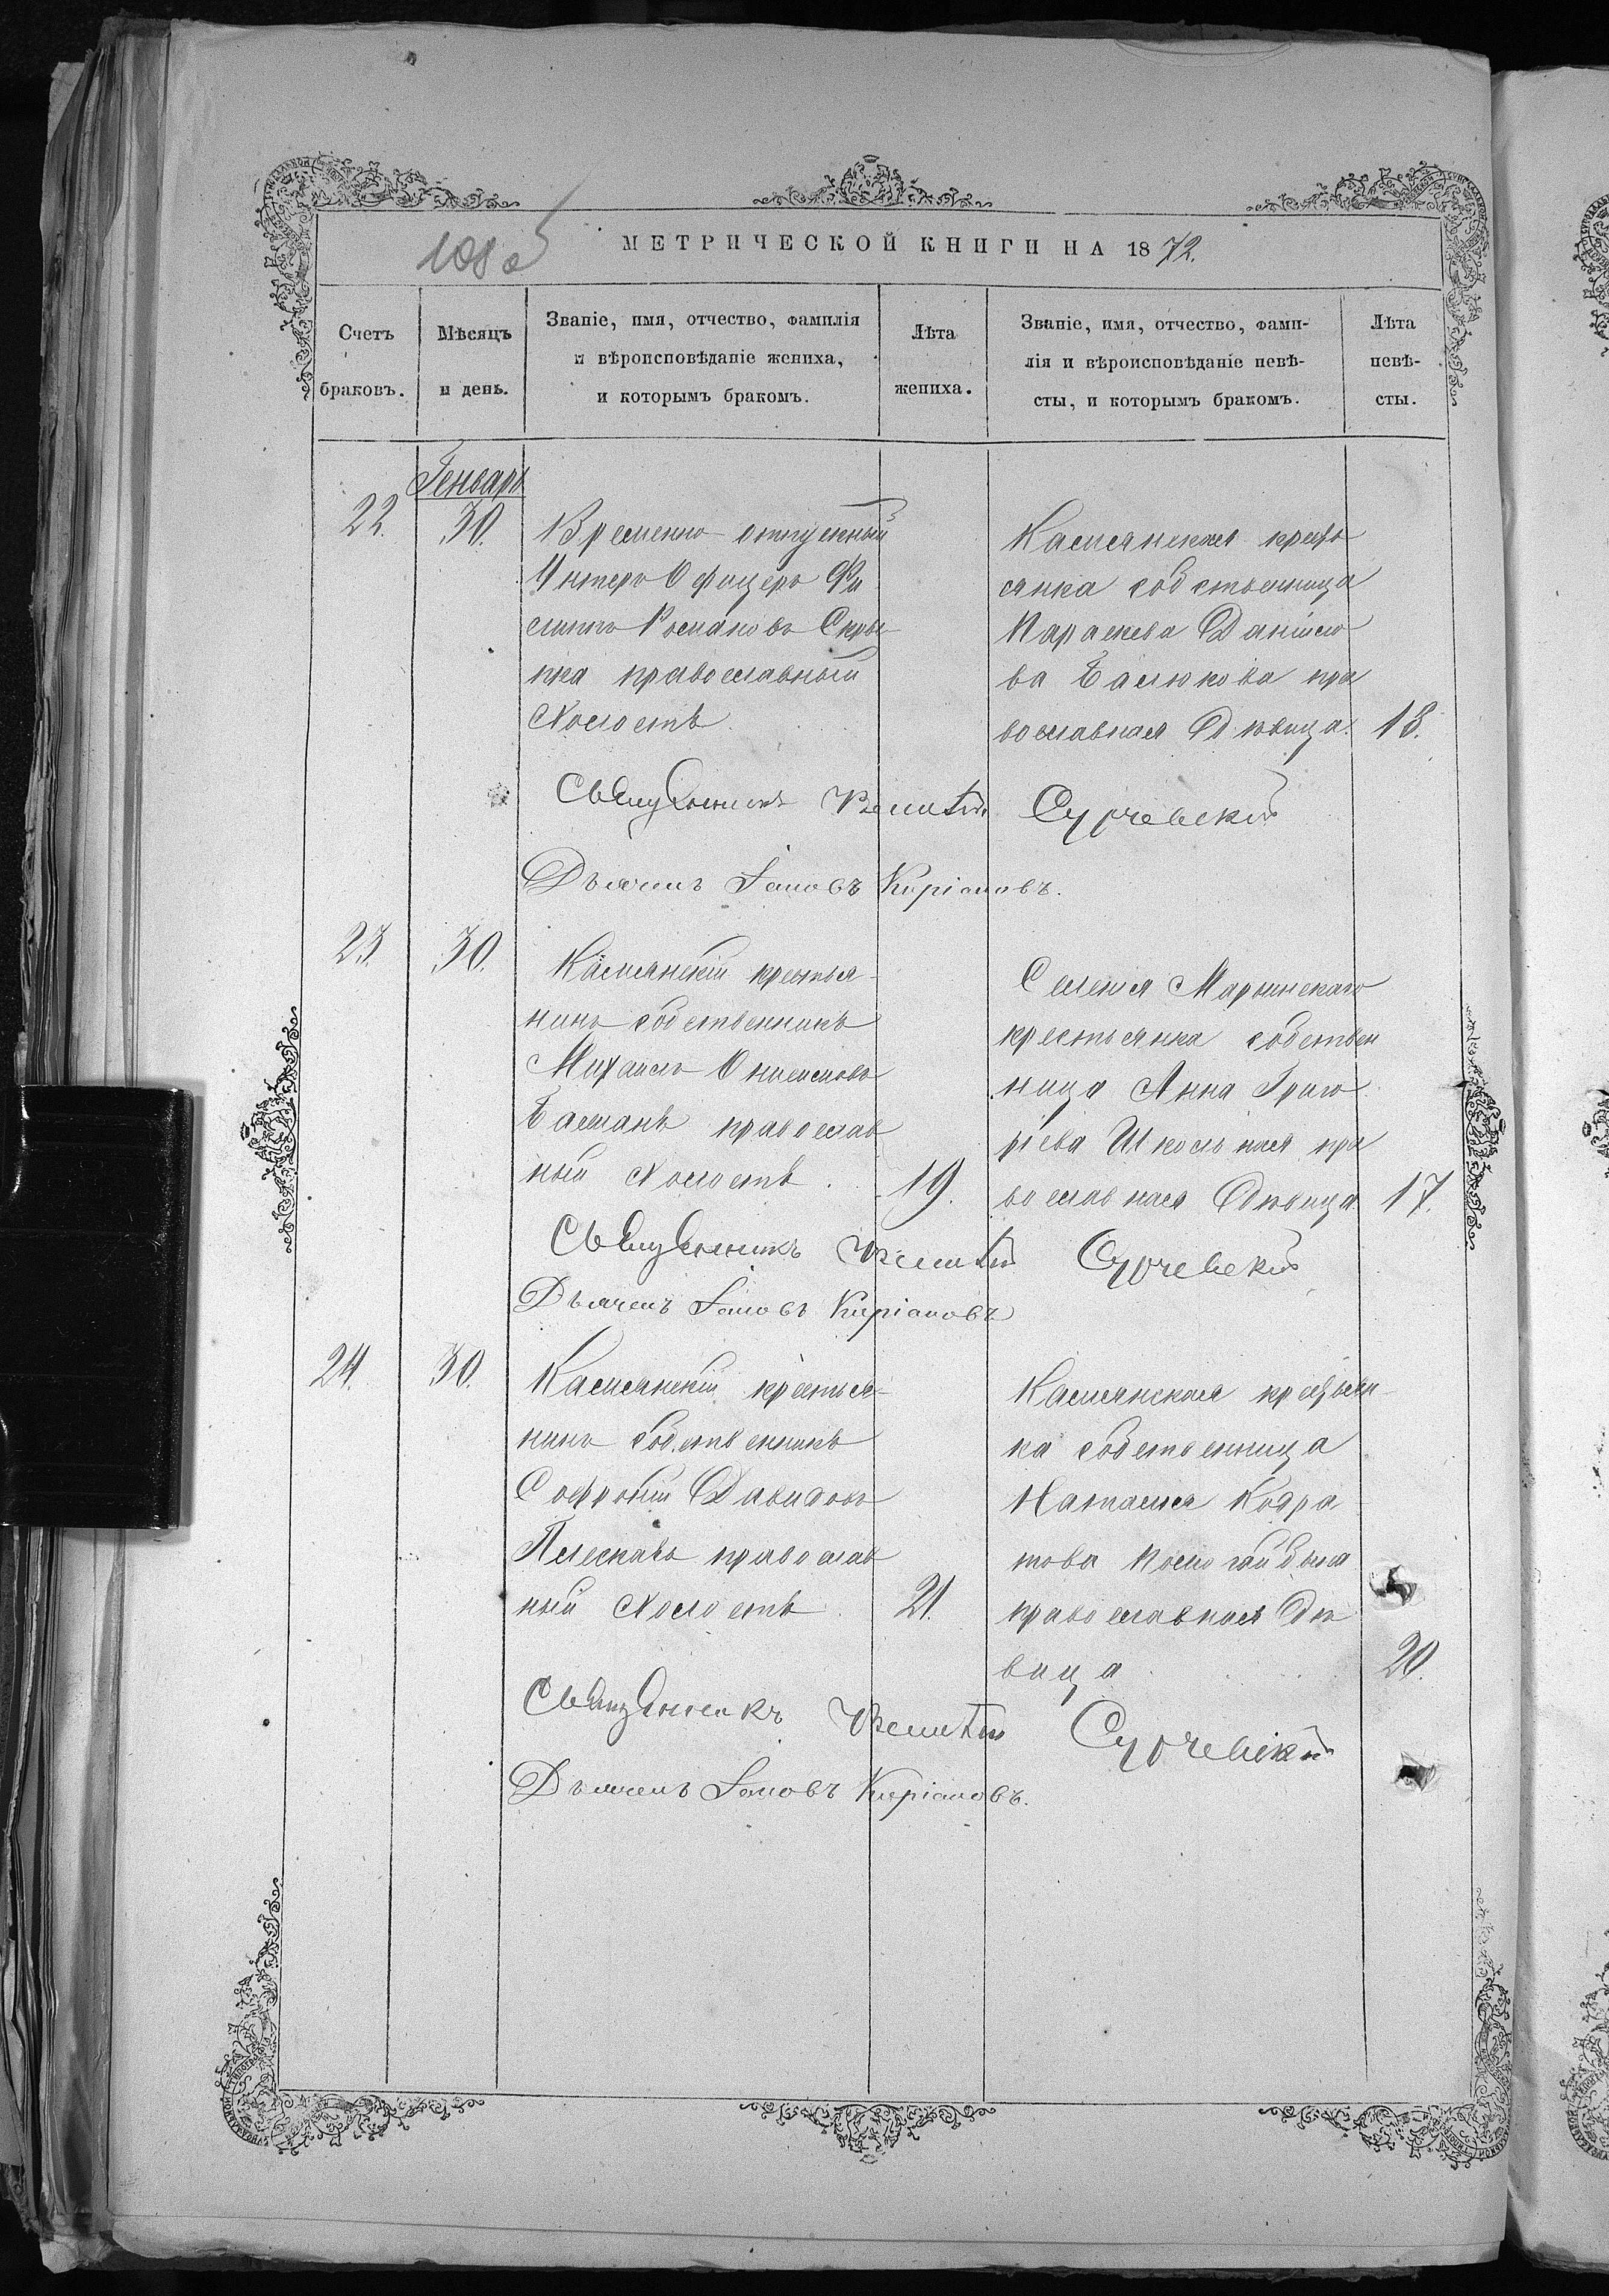 108 об
МЕТРИЧЕСКОЙ КНИГИ НА 1872.
Счетъ браковъ.
Мѣсяцъ и день.
Званіе, имя, отчество, фамилія
и вѣроисповѣданіе жениха,
и которымъ бракомъ.
Лѣта жениха.
Званіе, имя, отчество, фами-
лія и вѣроисповѣданіе невѣ-
сты, и которымъ бракомъ.
Лѣта невѣ-
сты.
Генварь
22. 30.
Временно-отпускный
Унтеръ Офицеръ Фи
липпъ Романовъ Скры-
пка православный
Холостъ.
Камянская кресть
янка собственница
Параскева Данило
ва Балюкова пра
вославная Дѣвица. 18.
Священникъ Сурчевскій
Дьячекъ Іаковъ Кирiановъ.
23. 30.
Камянскій крестья-
нинъ собственникъ
Михаилъ Онисимовъ
Басманъ православ
ный Холостъ. 19.
Селенія Марьинскаго
крестьянка собствен
ница Анна Григо
рьева Школьная пра
вославная Дѣвица 17.
Священникъ Сурчевскій
Дьячекъ Іаковъ Кирiановъ
24. 30.
Камянскій крестья-
нинъ собственникъ
Софроній Давидовъ
православ
ный Холостъ. 21.
Камянская крестьян-
ка собственница
Наталія Кодра
това
православная Дѣ
вица. 20.
Священникъ Сурчевскій
Дьячекъ Іаковъ Кирiановъ.